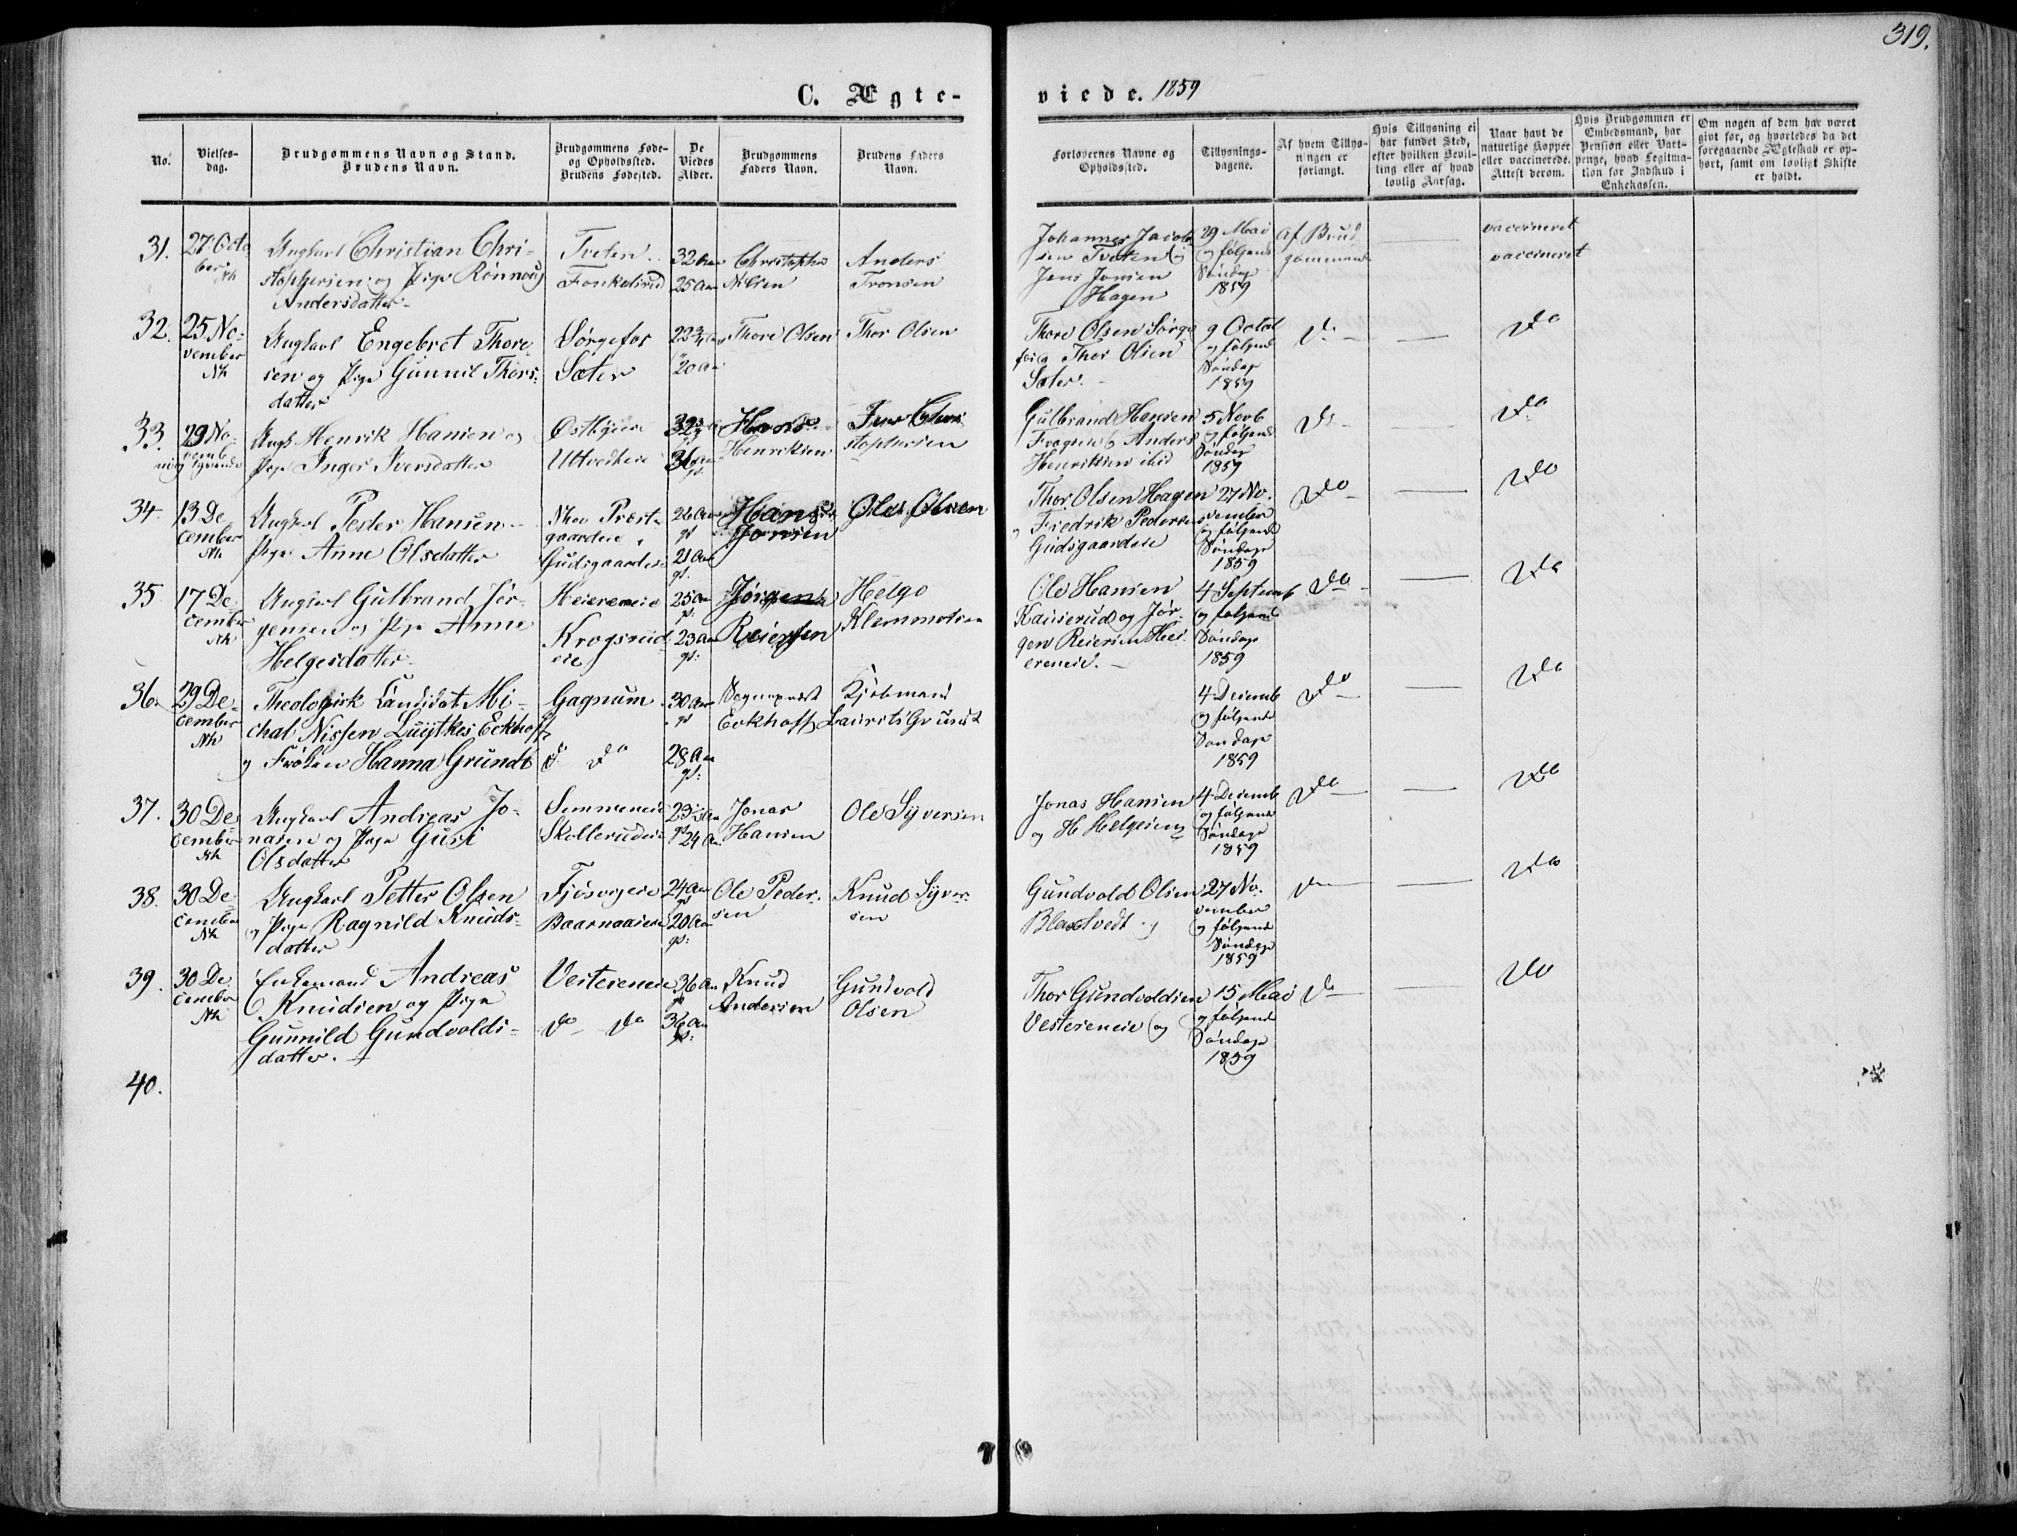 319.
C. Ægte-
viede. 1859
No.
Vielses-
dag.
Brudgommens Navn og Stand.
Brudens Navn.
Brudgommens Føde-
og Opholdssted.
Brudens Fødested.
De
Viedes
Alder.
Brudgommens
Faders Navn.
Brudens Faders
Navn.
Forlovernes Navne og
Opholdssted.
Tillysnings-
dagene.
Af hvem Tillys-
ningen er
forlangt.
Hvis Tillysning ei
har fundet Sted,
efter hvilken Bevil-
ling eller af hvad
lovlig Aarsag.
Naar havt de
naturlige Kopper
eller vaccinerede.
Attest derom.
Hvis Brudgommen er
Embedsmand, har
Pension eller Vart-
penge, hvad Legitima-
tion for Indskud i
Enkekassen.
Om nogen af dem har været
givt før, og hvorledes da det
foregaaende Ægteskab er op-
hørt, samt om lovligt Skifte
er holdt.
31.
27 Octo
ber
Nk
Ungkarl Christian Chri-
stophersen og Pige Rønnoug
Andersdatter
Tveten
32 Aar
25 Aar
Christopher
Nilsen
Anders
Tronsen
Johannes Jacob
sen Tveten og
Jens Jonsen
Hagen
29 Mai
og følgende
Søndage
1859
Af Brud
gommen
vaccineret
vaccineret
32.
25 No-
vember
Nk
Ungkarl Engebret Thore-
sen og Pige Gunnil Thors-
datter
Sørgefos
Sæter
20 Aar
Thore Olsen
Thor Olsen
Thore Olsen Sørge
fos og Thor Olsen
Sæter.
9 Octob
og følgende
Søndage
1859
Do
Do
33.
29 No-
vemb
Ungk. Henrik Hansen og
Pige Inger Iversdatter
Henriksen
Iver Chri
stophersen
Gulbrand Hansen
og Anders
Henriksen ibid
5 Novb
og følgende
Søndage
1859
Do
Do
34.
13 De
cember
Nk
Ungkarl Peder Hansen
Pige Anne Olsdatter
Præst-
gaardeie
Gudsgaardeie
26 Aar
gl
21 Aar
gl.
Hans
Jonsen
Ole Olsen
Thor Olsen Hagen
og Fredrik Pedersen
Gudsgaardeie
27 No-
vember
og følgende
Søndage
1859
Do
Do
35
17 De-
cember
Nk
Ungkarl Gulbrand Jør-
gensen og Pige Anne
Helgesdatter
Heiereneie
Krogsrud
eie
25 Aar
gl.
23 Aar
gl:
Jørgen
Reiersen
Helge
Klemmetsen
Ole Hansen
Kauserud og Jør-
gen Reiersen Hei-
ereneie.
4 Septemb
og følgende
Søndage
1859
Do
Do
36.
29 De-
cember
Nk
Theologisk Candidat Mi-
chal Nissen Luytkes Eckhoff
og Frøken Hanna Grundt
Gagnum
do do
30 Aar
gl
28 Aar
gl:
Sognepræst
Eckhoff
Kjøbmand
Laurits Grundt
4 Decemb
og følgende
Søndage
1859
Do
Do
37.
30 De-
cember
Nk
Ungkarl Andreas Jo-
nasen og Pige Guri
Olsdatter
Semmeneie
Skollerudeie
24 Aar
Jonas
Hansen
Ole Syversen
Jonas Hansen
og H Helgesen
4 Decemb
og følgende
Søndage
1859
Do
Do
38.
30 De
cember
Nk
Ungkarl Petter Olsen
og Pige Ragnild Knuds-
datter
24 Aar
gl
20 Aar
gl:
Ole Peder-
sen
Knud Syver-
sen
Gundvold Olsen
Blaxtvedt og
27 No-
vember
og følgende
Søndage
1859
Do
Do
39.
30 De
cember
Nk
Enkemand Andreas
Knudsen og Pige
Gunnild Gundvolds-
datter.
Vestereneie
do do
36 Aar
gl
36 Aar
gl:
Knud
Andersen
Gundvold
Olsen
Thor Gundvoldsen
Vestereneie og
15 Mai
og følgende
Søndage
1859
Do
Do
40.